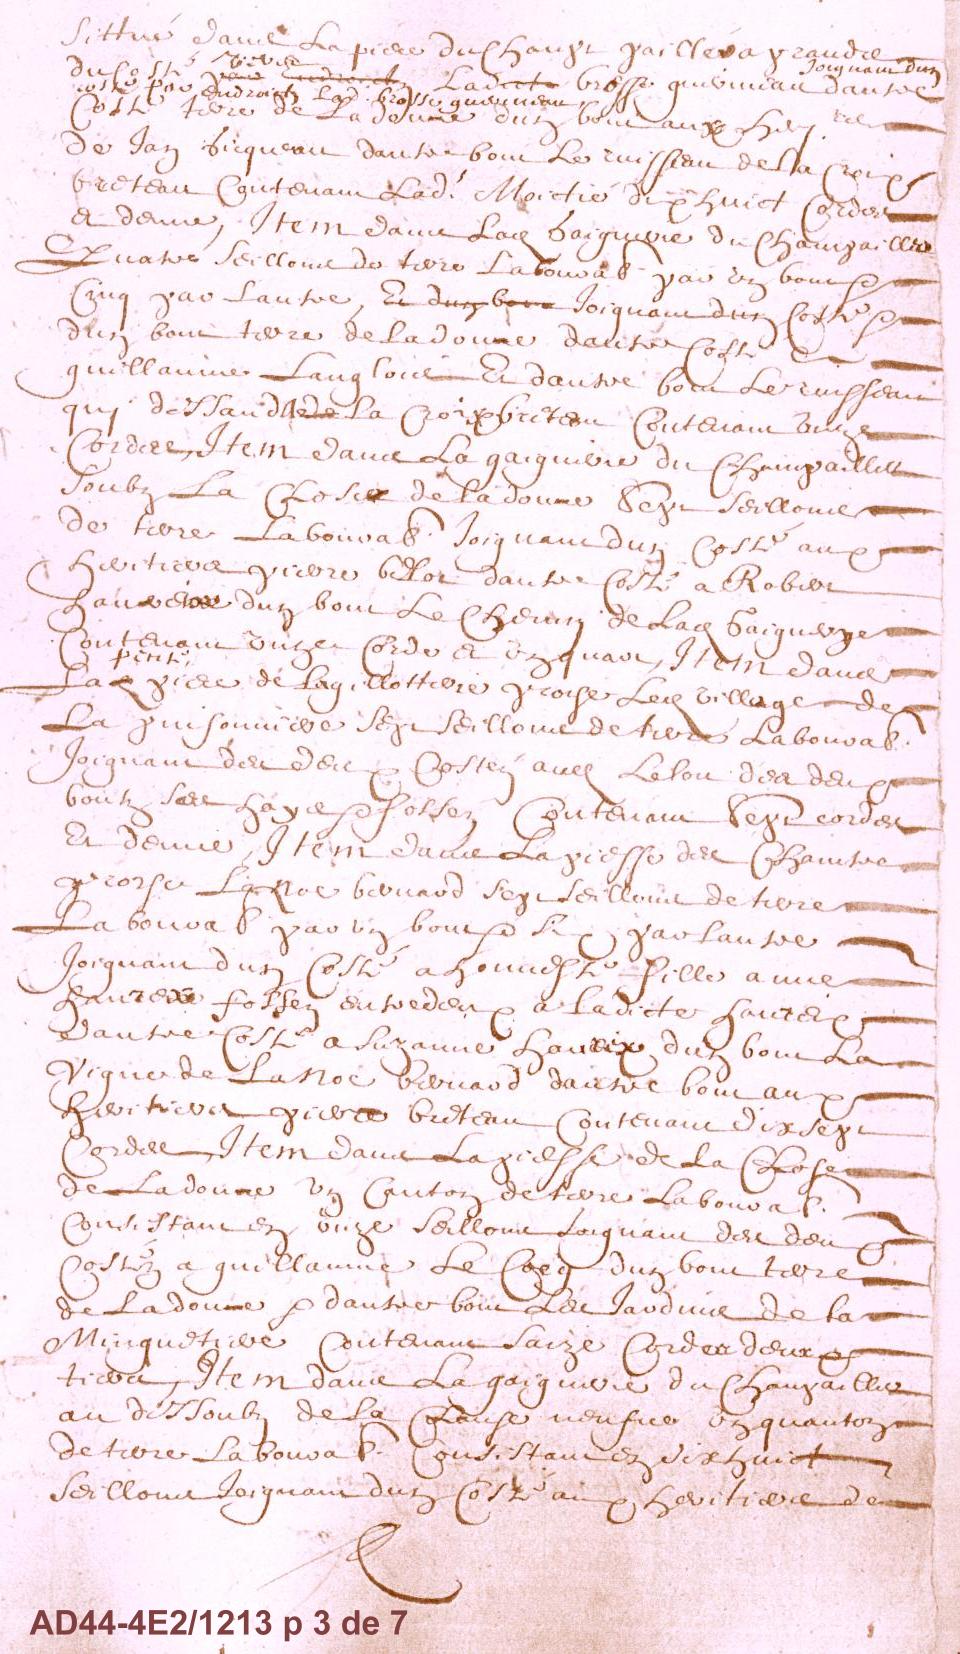 Sittué dans La piece du Champ paillé a prandre
du Costé
vers
Joignant dun
Ladicte brosse guerineau dautre
costé par endroictz Lad. brosse guerineau
Costé terre de Ladonne dun bout aux her.
de Jan Bicqueau dautre bout Le ruisseau de la Croix
breteau Contenant Lad. Moictié dixhuict Cordes
et demie, Item dans Lad gaignerie du Champaillé
Quatre Seillons de terre Labourab. par un bout &
Cinq par Lautre, Et dun bout Joignant dun Costé &
dun bout terre de Ladonne dautre Costé
guillaume Langlois Et dautre bout Le ruisseau
qui dessand de La Croix breteau Contenant unze
Cordes, Item dans La gaignerie du Champaillé
Soubz La Close de Ladonne Sept Seillons
de terre Labourab. Joignant dun Costé aux
heritiers pierre dautre Costé a Robert
haureix dun bout Le Chemin de Lad gaignerye
Contenant unze Corde et un quart, Item dans
petite
La piece de Lagillottiere proche Led village de
La puisonniere Sept Seillons de terre Labourab.
Joignant des deux Costez aud Lelou des deux
boutz Ses hayes & fossez Contenant Sept cordes
Et demie, Item dans La piesse des Chantre
proche La Noe bernard Sept Seillons de terre
Labourab. par un bout & Six par Lautre
Joignant dun Costé a honneste fille anne
haureix fossez entredeux a Ladicte haureix
dautre Costé a Suzanne haureix, dun bout La
Vigne de La Noe bernard dautre bout aux
heritiers pierre breteau Contenant dixsept
Cordes, Item dans La piesse de La Close
de Ladonne un Canton de terre Labourab.
Consistant en unze Seillons Joignant des deux
Costez a guillaume Le Cocq dun bout terre
de Ladonne & dautre bout Les Jardins de la
Minquetiere Contenant Saize Cordes deux
tiers, Item dans La gaignerie du Champaillé
au dessoubz de La Close neufve un quanton
de terre Labourab. Consistant en dixhuict
Seillons Joignant dun Costé aux heritiers de
AD44-4E2/1213 p 3 de 7